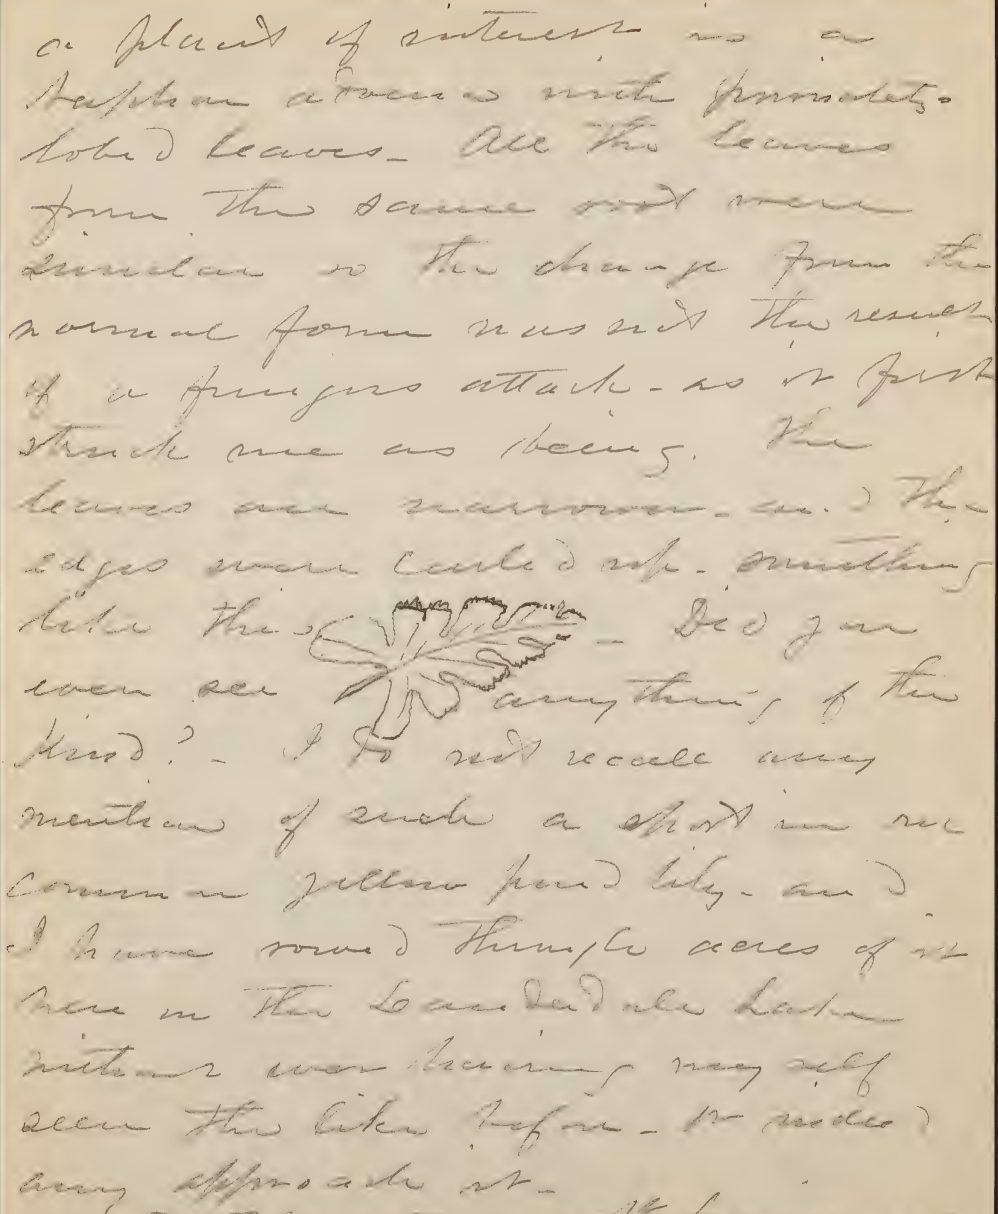 a plant of interest is a
Nuphar advena with pinnately-
lobed leaves - All the leaves
from the same root were
similar so the change from the
normal form was not the result
of a fungus attack - as it first
struck me as being. The
leaves are narrower - and the
edges were curled up - something
like this - Did you
ever see anything of the
kind? - I do not recall any
mention of such a sport in our
common yellow pond lily - and
I have rowed through acres of it
here in the Lauderdale Lakes
without ever having myself
seen the like before - or indeed
any approach it -